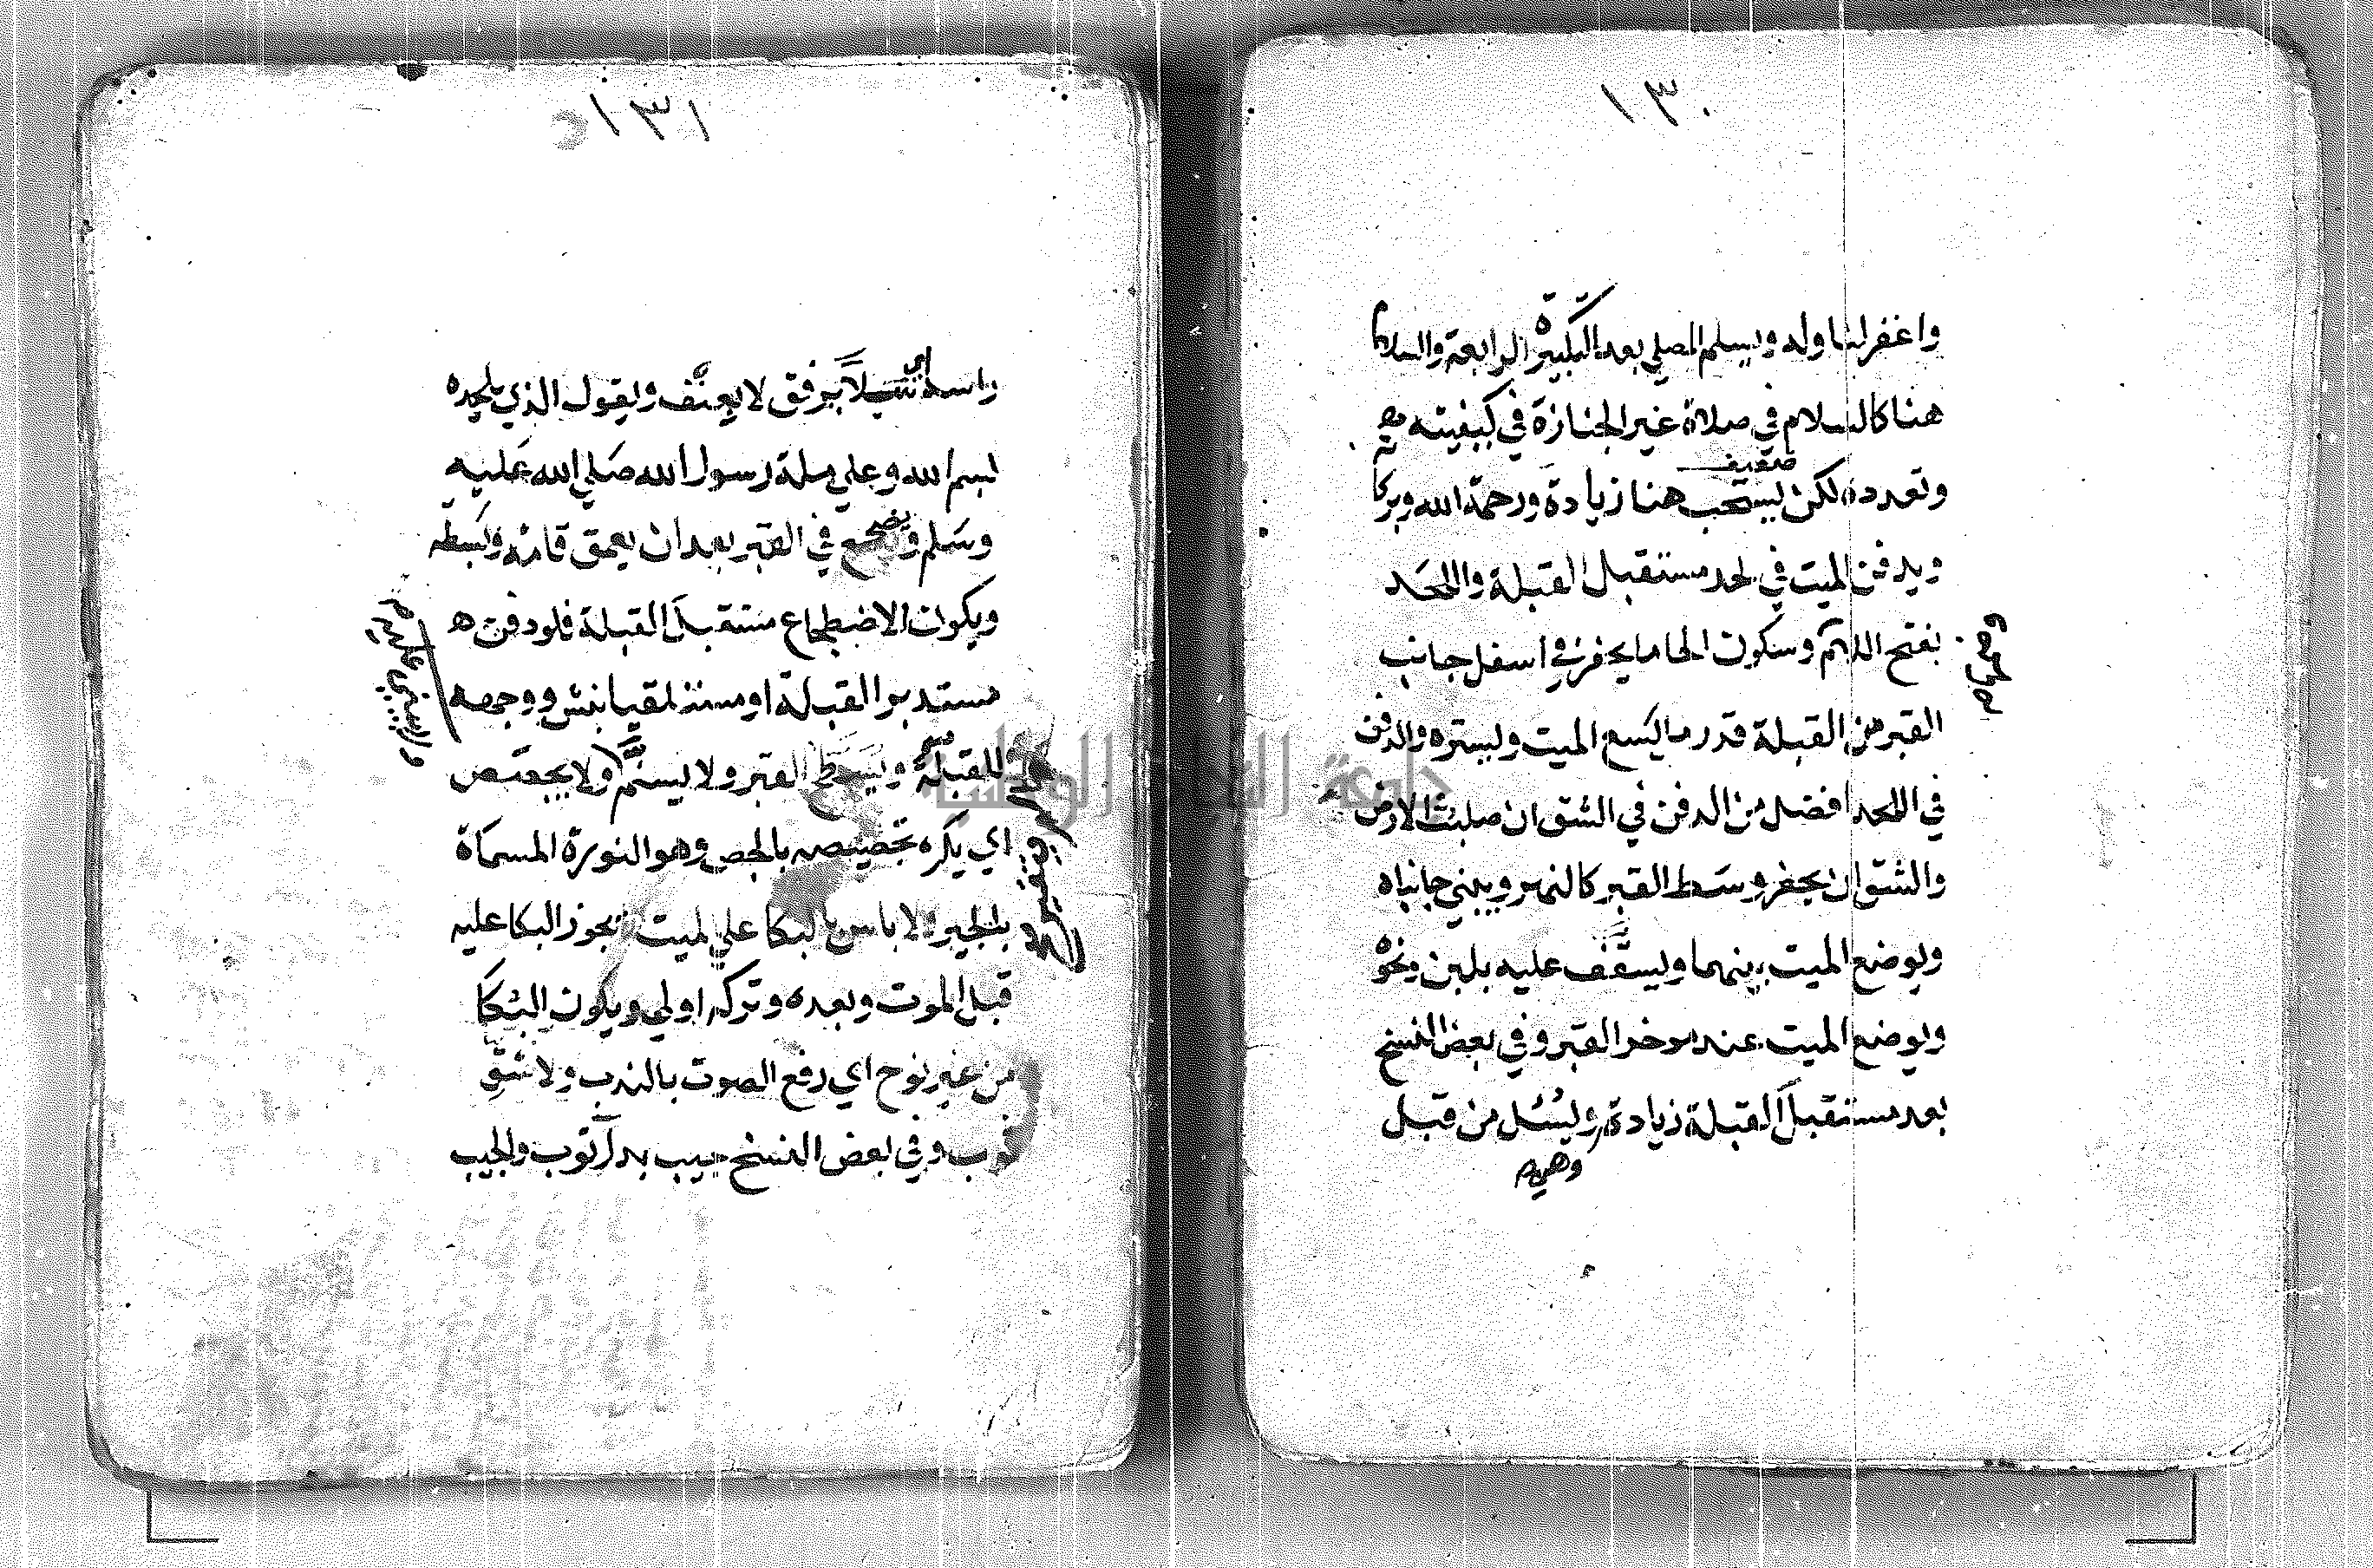 ١٣٠
واغفر لنا وله ويسلم المصلي بعد التكبيرة الرابعة والسلام
هنا كالسلام في صلاة غير الجنازة في كيفيته
وتعدده لكن يستحب هنا زيادة ورحمة الله وبركا
ضعيف
ويدفن الميت في لحد مستقبل القبلة واللحد
بفتح اللام وسكون الحا ما يحفر في اسفل جانب
القبر من القبلة قدر ما يسع الميت ويستره والدفن
في اللحد افضل من الدفن في الشق ان صلبت الارض
والشق ان يحفر وسط القبر كالنهر ويبني جانباه
ويوضع الميت بينهما ويسقف عليه بلبن ونحوه
ويوضع الميت عند موخر القبر وفي بعض النسخ
بعد مستقبل القبلة زيادة ويسل من قبل
وهي
١٣١
راسه سلا برفق لا يعنف ويقول الذي يلحده
اي
بسم الله وعلي ملة رسول الله صلي الله عليه
وسلم ويضجع في القبر بعد ان يعمق قامة وبسطه
ويكون الاضطجاع مستقبل القبلة فلو دفن
مستدبر القبلة او مستلقيا نبش ووجه
للقبلة ويسطح القبر ولا يسنم ولا يجصص
اي يكره تجصيصه بالجص وهو النورة المسماة
بالجير ولا باس بالبكا علي لميت يجوز البكا عليه
قبل الموت وبعده وتركه اولي ويكون البكا
من غير نوح اي رفع الصوت بالندب ولا شق
ثوب وفي بعض النسخ جيب بدل ثوب والجيب